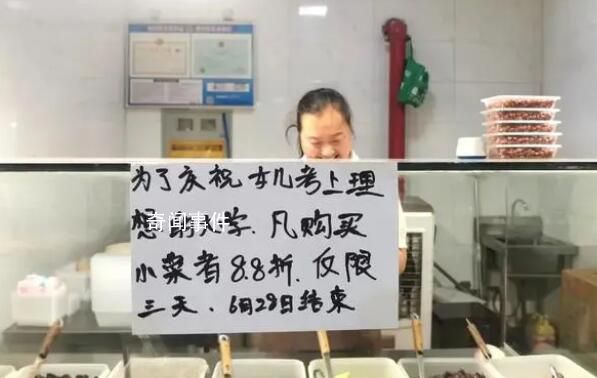 为了庆祝女儿考上理
想的大学.凡购买
小菜者8.8折.仅限
三天、6月28日结束
奇闻事件